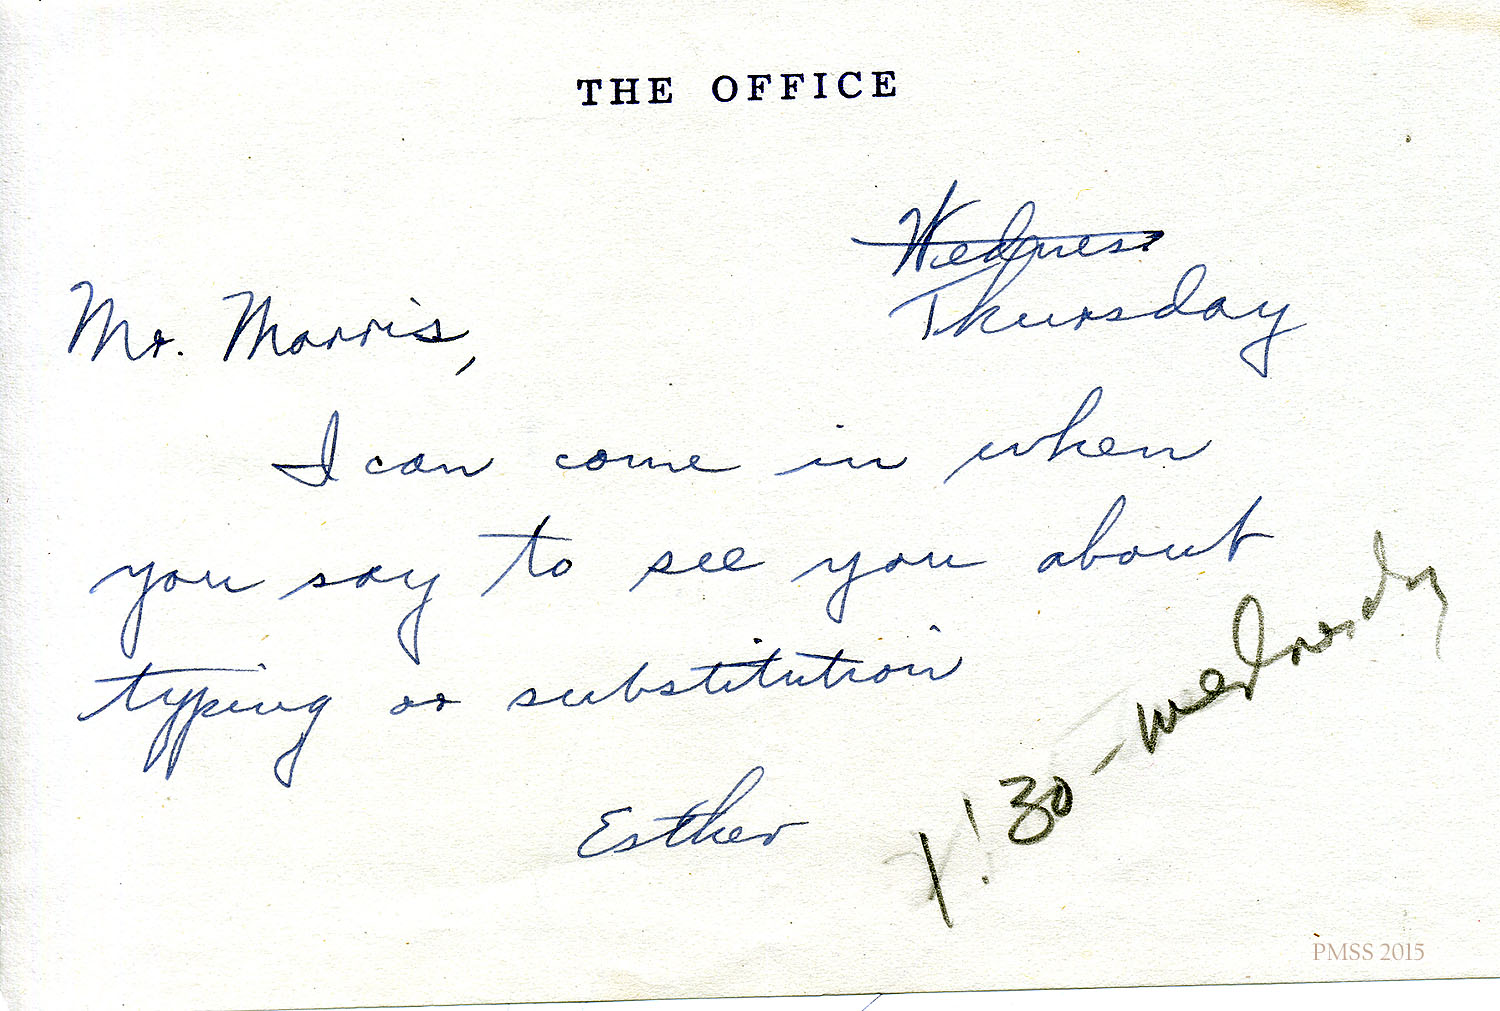 THE OFFICE
Wednes.
Thursday
Mr. Morris,
I can come in when
you say to see you about
typing or substitution
Esther
1:30 - Wednesday
PMSS 2015